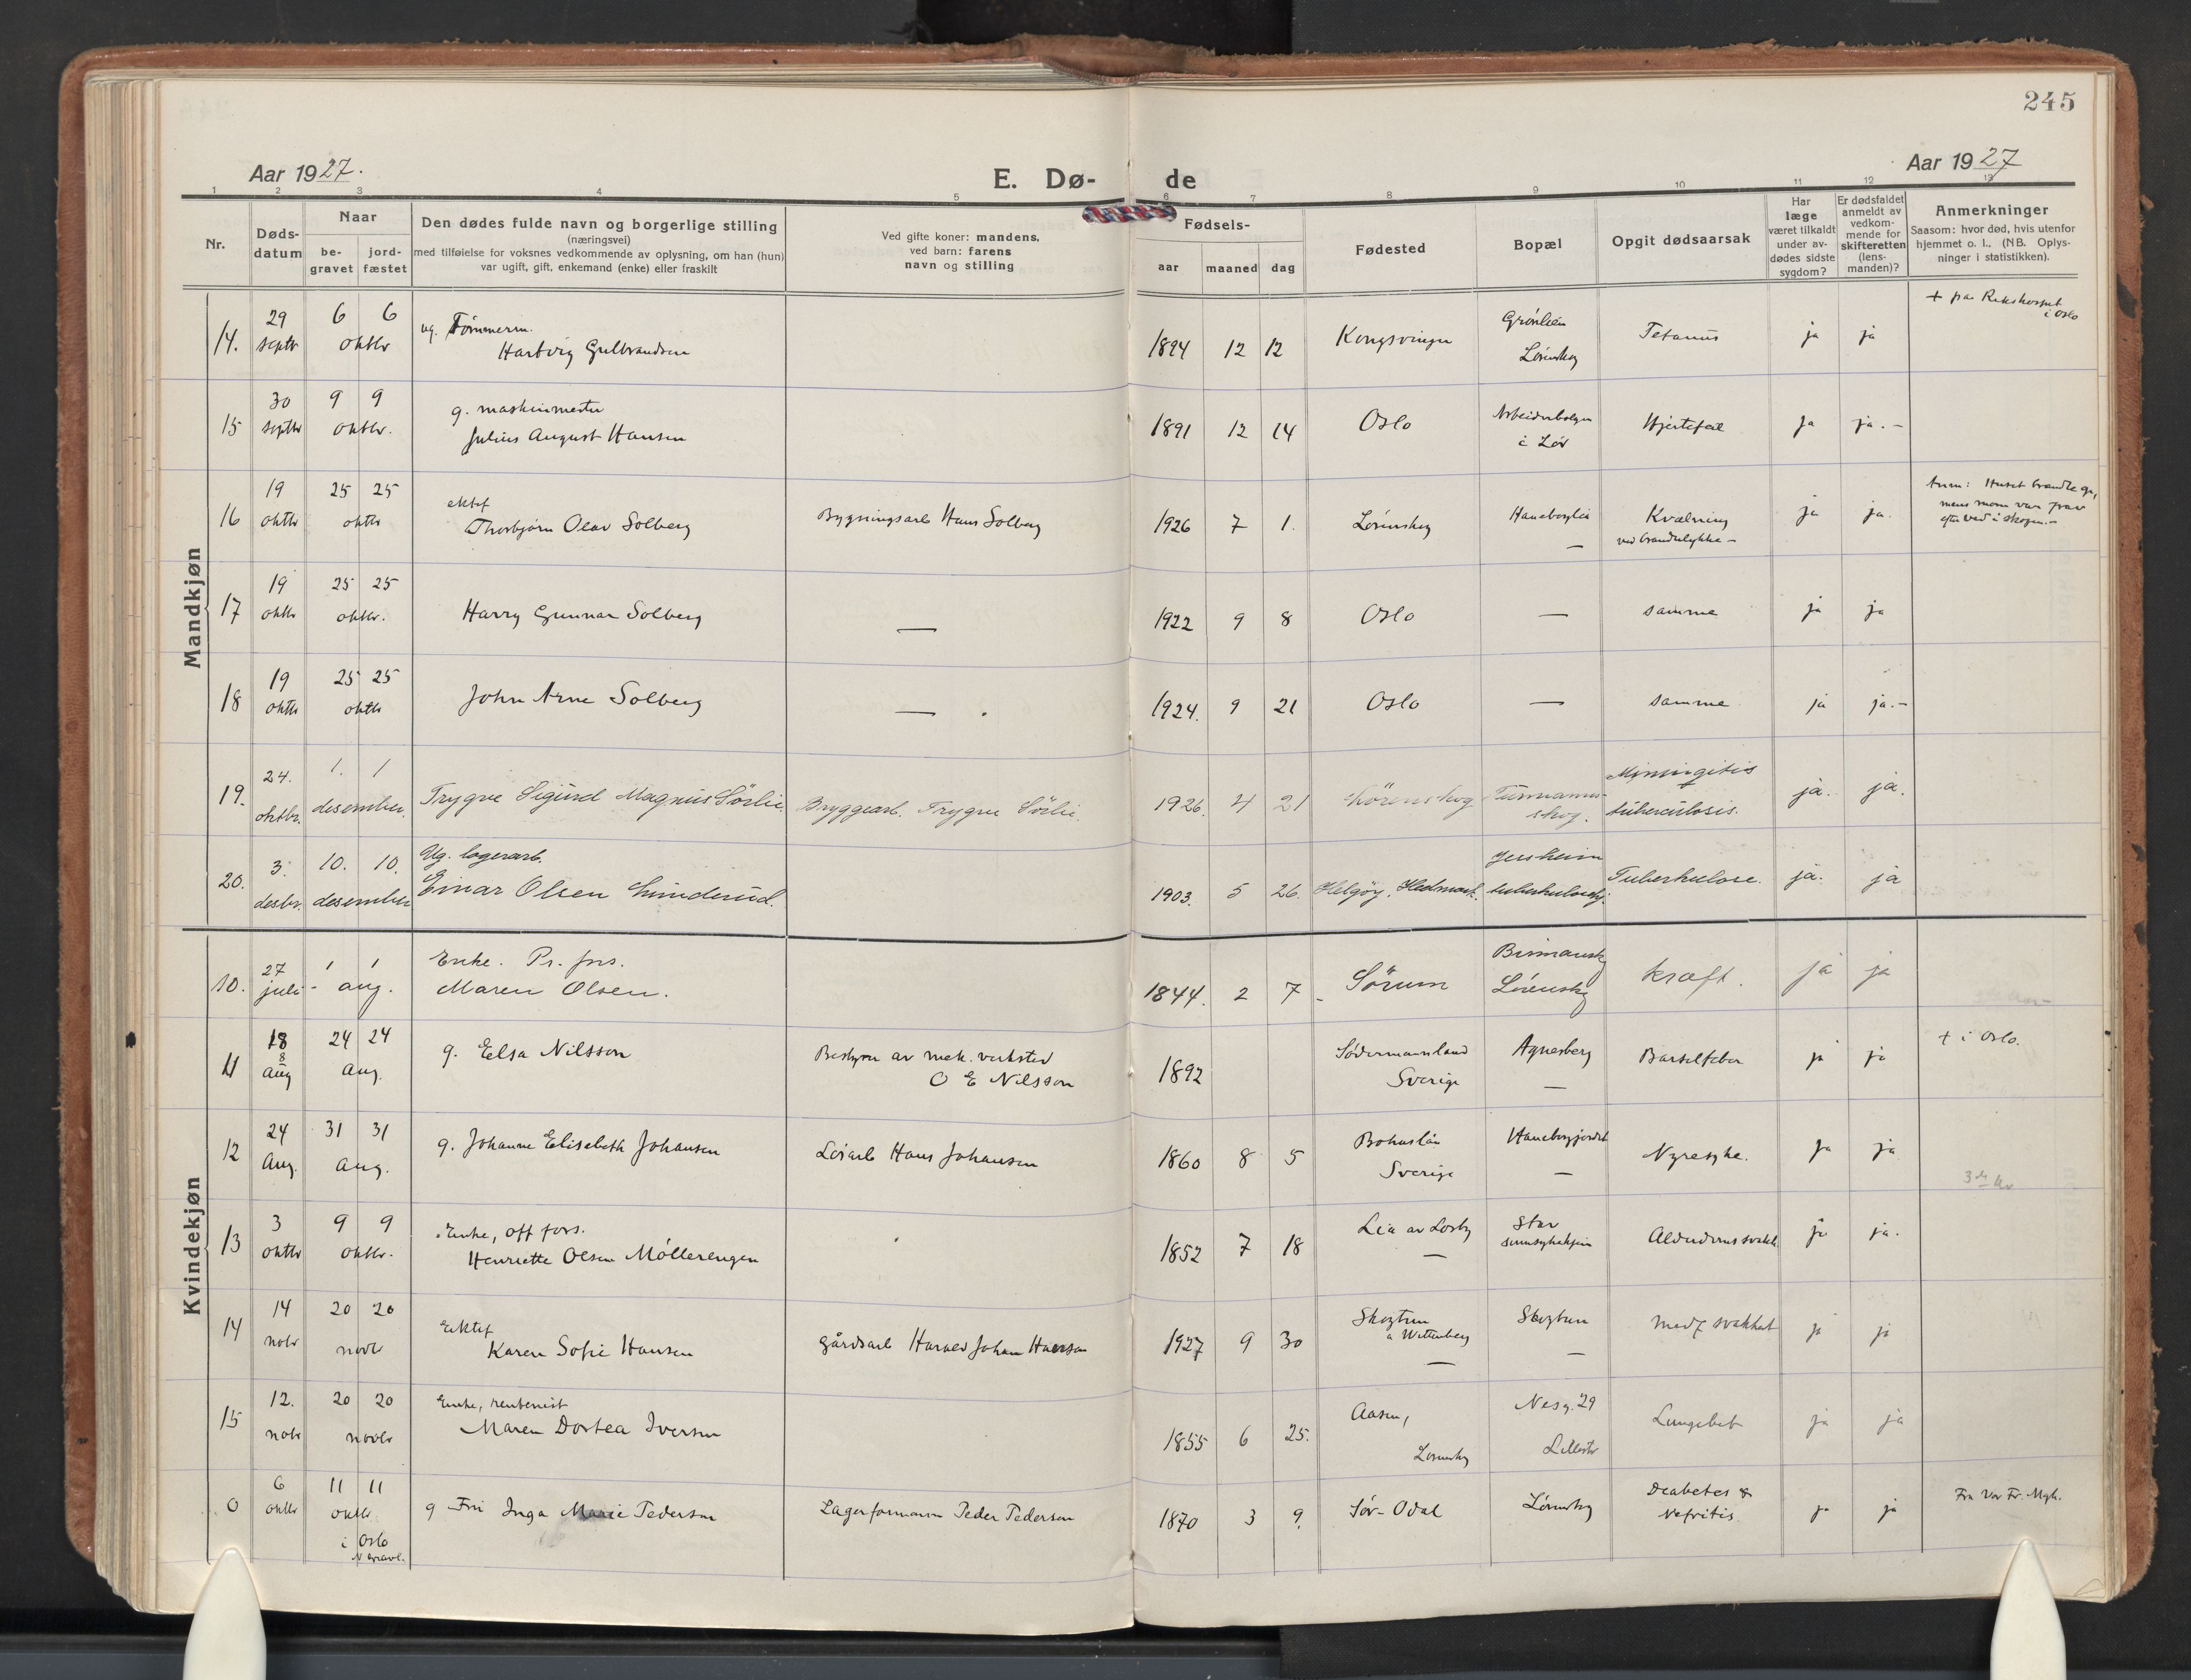 245
Aar 1927.
E. Dø-
de
Aar 1927
1 2 3 4 5 6 7 8 9 10 11 12 13
Nr.
Døds-
datum
Naar
be-
gravet
jord-
fæstet
Den dødes fulde navn og borgerlige stilling
(næringsvei)
med tilføielse for voksnes vedkommende av oplysning, om han (hun)
var ugift, gift, enkemand (enke) eller fraskilt
Ved gifte koner: mandens,
ved barn: farens
navn og stilling
Fødsels-
aar maaned dag
Fødested
Bopæl
Opgit dødsaarsak
Har
læge
været tilkaldt
under av-
dødes sidste
sygdom?
Er dødsfaldet
anmeldt av
vedkom-
mende for
skifteretten
(lens-
manden)?
Anmerkninger
Saasom: hvor død, hvis utenfor
hjemmet o. l.. (NB. Oplys-
ninger i statistikken).
Mandkjøn
14. 29 septr 6 6 oktbr
ug. Tømmerm.
Hartvig Gulbrandsen
1894 12 12 Kongsvinger
Grønlien
Lørenskog
Tetanus ja ja
+ paa Rikshospit
i Oslo
15 30 septbr 9 9 oktbr.
g. maskinmester
Julius August Hansen
1891 12 14 Oslo
Arbeiderboligen
i Lør
Hjertefeil ja ja.-
16 19 oktbr 25 25 oktbr
ektef
Thorbjørn Olav Solberg
Bygningsarb Hans Solberg
1926 7 1. Lørenskog
Haneborglia
—
Kvælning
ved brandulykke -
ja ja.
Anm: Huset brændte op,
mens moren var frav
efter ved i skogen.-
17 19 oktbr 25 25 oktbr.
Harry Gunnar Solberg
—
1922 9 8 Oslo — samme ja ja
18 19 oktbr 25 25 oktbr
John Arne Solberg
— .
1924. 9 21 Oslo — samme ja ja.-
19. 24. oktbr. 1. 1 desember.
Trygve Sigurd Magnus Sörlie.
Bryggearb. Trygve Sörlie.
1926. 4 21 Lörenskog
skog.
tuberculosis.
ja. ja.
20. 3. desbr. 10. 10. desember
Ug. lagerarb.
Einar Olsen Lunderud.
1903. 5 26. Helgöy, Hedmark.
Jessheim
tuberkulosehj.
Tuberkulose. ja. ja
Kvindekjøn
10. 27 juli - 1 1 aug.
Enke. Pr. fors.
Maren Olsen.
1844. 2 7 - Sörum
Lörensky
kræft. ja ja
11 18 8 aug 24 24 aug.
g. Elsa Nilsson
Bestyrer av mek. verksted
O E Nilsson
1892
Södermannland
Sverige
Agnesberg
—
Barselfeber ja ja
+ i Oslo.
12 24 Aug. 31 31 aug.
g. Johanne Elisebeth Johansen
Løsarb Hans Johansen
1860 8 5
Bohuslän
Sverige
Haneborgjordet
—
Nyresyke. ja ja
3 kv
13 3 oktbr 9 9 oktbr.
Enke, off fors.
Henriette Olsen Møllerengen
1852 7 18
Lia av Losby
—
Stav
sinnsykehjem
Alderdomssvakh. ja ja.
14 14 nobr 20 20 novbr
Ektef
Karen Sofie Hansen
gårdsarb Harald Johan Hansen
1927 9 30
Skogtun
a Wittenberg
—
Skogtun
—
medf svakhet ja ja
15 12. nobr 20 20 novbr
Enke, rentenist
Maren Dortea Iversen
1855 6 25.
Aasen,
Lørensky
Nesg. 29
Lillestr
Lungebet ja ja
0 6 oktbr 11 11 oktbr.
i Oslo
g Fru Inga Marie Pedersen
Lagerformann Peder Pedersen
1870 3 9. Sør-Odal
Lørensky
Deabetes &
Nefritis.
ja ja
Fra Vor Fr. Mgh.